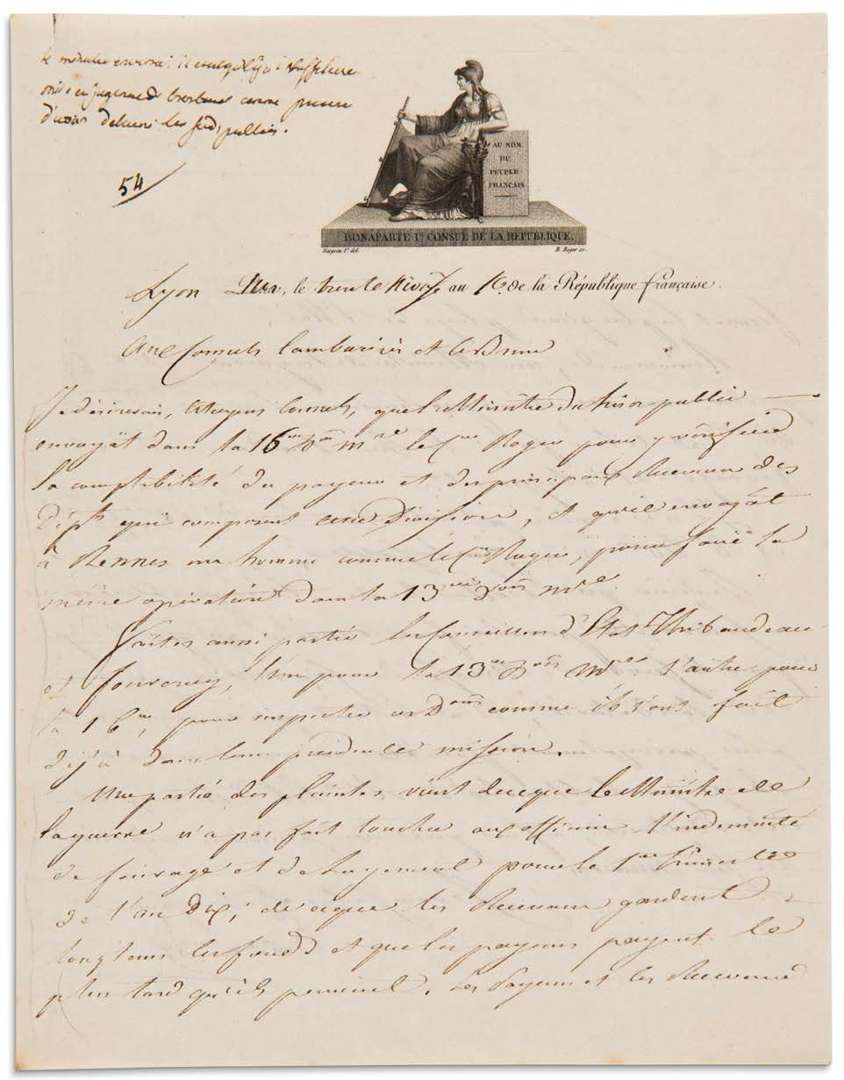 AU NOM
DU
PEUPLE
FRANÇAIS
BONAPARTE Ier CONSUL DE LA REPUBLIQUE.
B. Roger sc.
54
Lyon le trente Nivose an de la République française.
Aux Consuls Cambacérès et Le Brun
Je désirerais, Citoyens Consuls, que le Ministre du trésor public
envoyât dans la 16me Don mre le Cen Roger pour y vérifier
la comptabilité du payeur et des principaux Receveurs des
Dépts qui composent cette Division, et qu'il envoyât
à Rennes un homme comme le Cen Roger, pour faire la
même opération dans la 13me Don mre.
Faites aussi partir les Conseillers d'Etat Thibaudeau
et Fourcroy, l'un pour la 13me Don Mre l'autre pour
la 16me, pour inspecter ces Dons comme ils l'ont fait
déjà dans leur précédente mission.
Une partie des plaintes vient de ce que le Ministre de
la guerre n'a pas fait toucher aux officiers l'indemnité
de fourage et de logement pour le 1er trimestre
de l'an Dix; de ce que les Receveurs gardent
longtems les fonds et que les payeurs payent le
plus tard qu'ils peuvent. Les Payeurs et les Receveurs